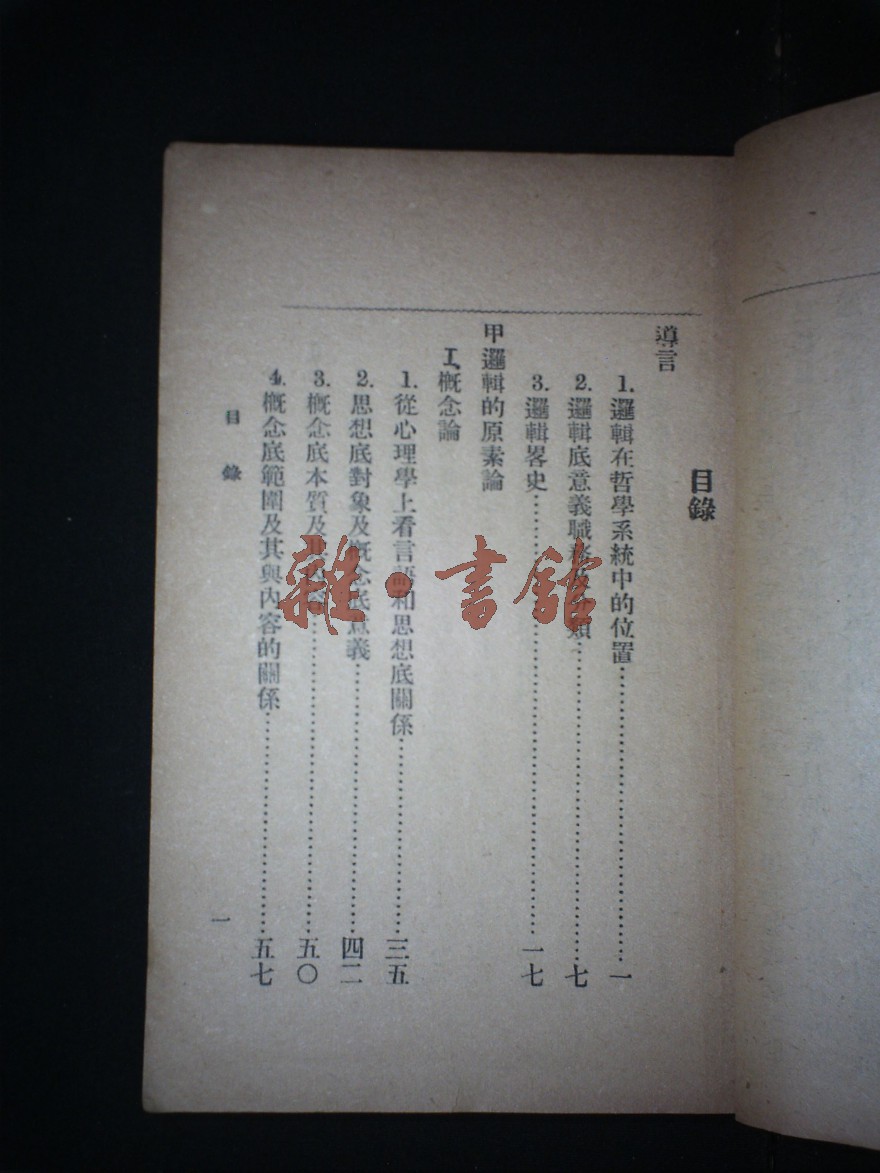 目錄
導言
1. 邏輯在哲學系統中的位置……一
2. 邏輯底意義職務及分類……七
3. 邏輯畧史……一七
甲 邏輯的原素論
I、概念論
1. 從心理學上看言語和思想底關係……三五
2. 思想底對象及概念底意義……四二
3. 概念底本質及其內容……五〇
4. 概念底範圍及其與內容的關係……五七
目錄
一
雜·書館